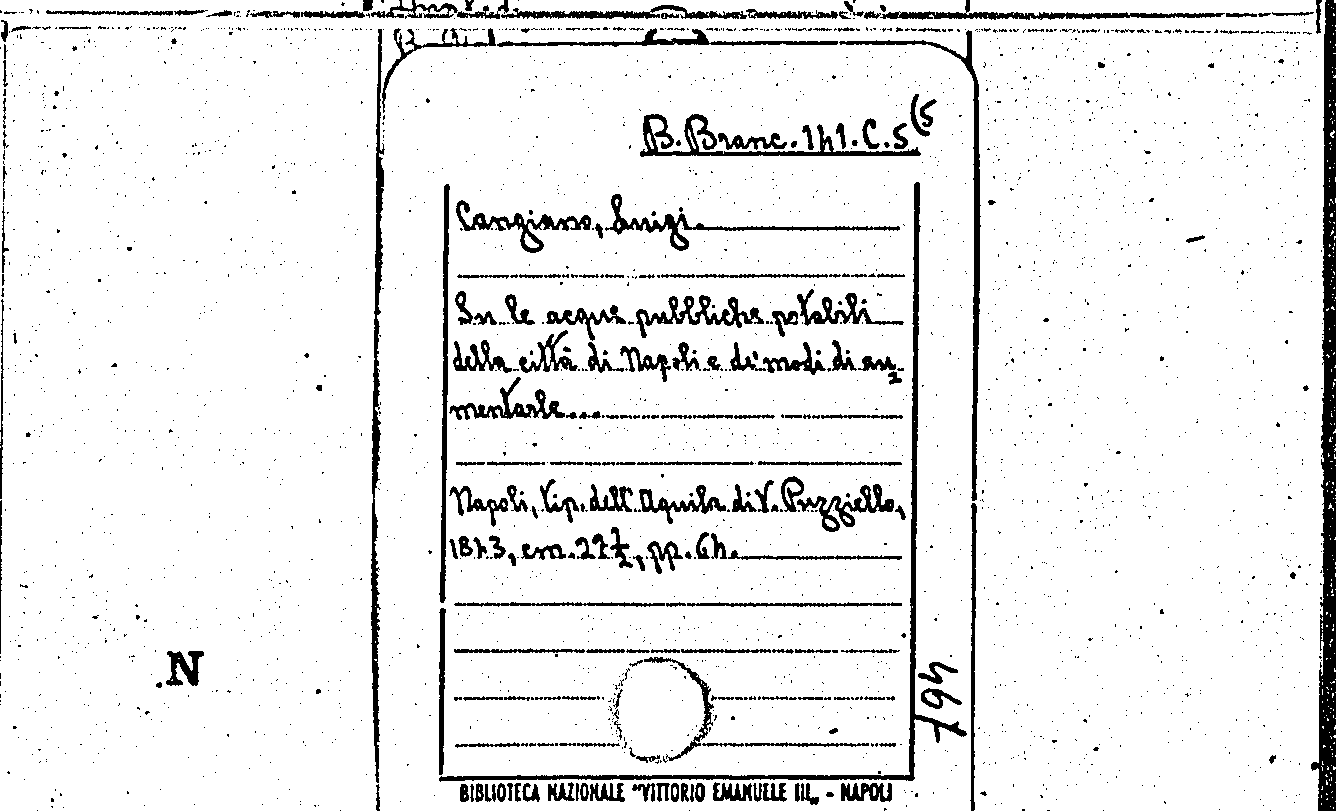 B. Branc. 141. C. 5 (5
Cangiano, Luigi.
Su le acque pubbliche potabili
della città di Napoli e de' modi di au=
mentarle...
Napoli, tip. dell'Aquila di V. Puzziello,
1843, cm. 27 1/2, pp. 64.
N
BIBLIOTECA NAZIONALE "VITTORIO EMANUELE III„ - NAPOLI